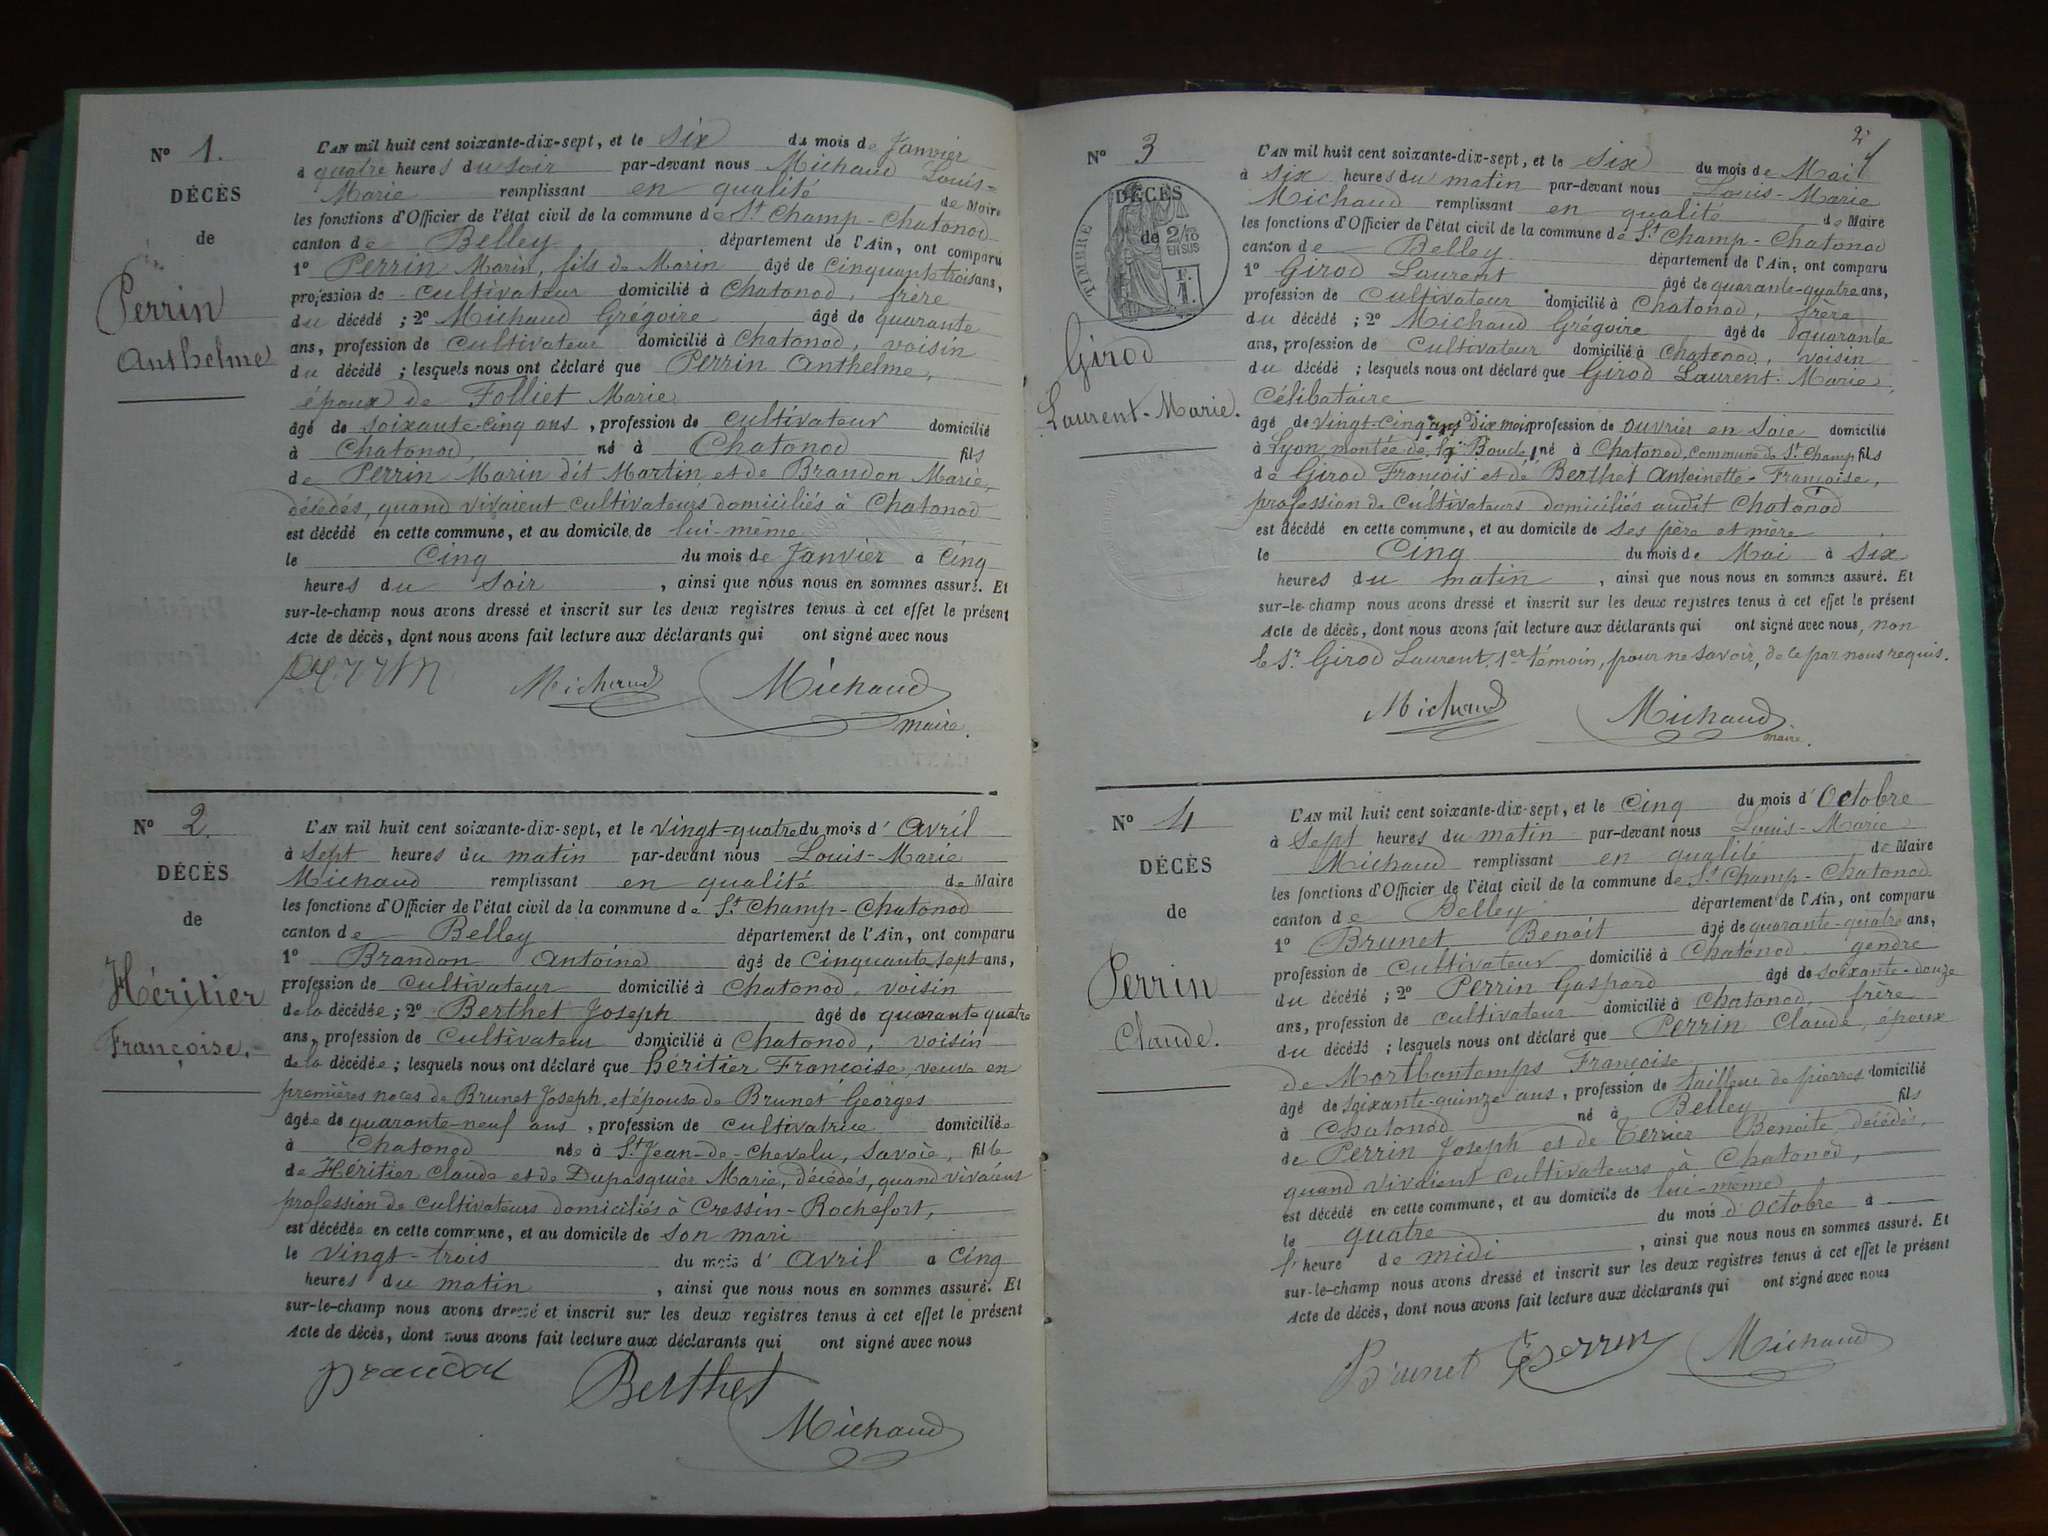 N° 1.
DÉCÈS
de
Perrin
Anthelme
L'AN mil huit cent soixante-dix-sept, et le six du mois de Janvier
à quatre heures du soir par-devant nous Michaud Louis-
Marie remplissant en qualité de Maire
les fonctions d'Officier de l'état civil de la commune de St Champ-Chatonod
canton de Belley département de l'Ain, ont comparu
1° Perrin Marin, fils de Marin âgé de cinquante trois ans,
profession de cultivateur domicilié à Chatonod, frère
du décédé ; 2° Michaud Grégoire âgé de quarante
ans, profession de cultivateur domicilié à Chatonod, voisin
du décédé ; lesquels nous ont déclaré que Perrin Anthelme,
époux de Folliet Marie
âgé de soixante-cinq ans, profession de cultivateur domicilié
à Chatonod, né à Chatonod fils
de Perrin Marin dit Martin et de Brandon Marie,
décédés, quand vivaient cultivateurs domiciliés à Chatonod
est décédé en cette commune, et au domicile de lui-même
le Cinq du mois de Janvier à Cinq
heures du soir, ainsi que nous nous en sommes assuré. Et
sur-le-champ nous avons dressé et inscrit sur les deux registres tenus à cet effet le présent
Acte de décès, dont nous avons fait lecture aux déclarants qui ont signé avec nous
Perrin Michaud Michaud
maire.
N° 2.
DÉCÈS
de
Héritier
Françoise.
L'AN mil huit cent soixante-dix-sept, et le vingt-quatre du mois d' Avril
à sept heures du matin par-devant nous Louis-Marie
Michaud remplissant en qualité de Maire
les fonctions d'Officier de l'état civil de la commune de St Champ-Chatonod
canton de Belley département de l'Ain, ont comparu
1° Brandon Antoine âgé de cinquante sept ans,
profession de cultivateur domicilié à Chatonod, voisin
de la décédée ; 2° Berthet Joseph âgé de quarante quatre
ans, profession de cultivateur domicilié à Chatonod, voisin
de la décédée ; lesquels nous ont déclaré que héritier Françoise, veuve en
premières noces de Brunet Joseph, et épouse de Brunet Georges
âgée de quarante-neuf ans, profession de cultivatrice domiciliée
à Chatonod née à St Jean-de-Chevelu, Savoie, fille
de Héritier Claude et de Dupasquier Marie, décédés, quand vivaient
profession de cultivateurs domiciliés à Cressin-Rochefort,
est décédée en cette commune, et au domicile de son mari
le vingt-trois du mois d' Avril à cinq
heures du matin, ainsi que nous nous en sommes assuré. Et
sur-le-champ nous avons dressé et inscrit sur les deux registres tenus à cet effet le présent
Acte de décès, dont nous avons fait lecture aux déclarants qui ont signé avec nous
Brandon Berthet
Michaud
2
N° 3
DÉCÈS
de
TIMBRE
2/10
EN SUS
Girod
Laurent-Marie.
L'AN mil huit cent soixante-dix-sept, et le six du mois de Mai
à six heures du matin par-devant nous Louis-Marie
Michaud remplissant en qualité de Maire
les fonctions d'Officier de l'état civil de la commune de St Champ-Chatonod
canton de Belley département de l'Ain, ont comparu
1° Girod Laurent âgé de quarante-quatre ans,
profession de cultivateur domicilié à Chatonod, frère
du décédé ; 2° Michaud Grégoire âgé de quarante
ans, profession de cultivateur domicilié à Chatonod, voisin
du décédé ; lesquels nous ont déclaré que Girod Laurent-Marie,
Célibataire
âgé de vingt-cinq ans dix mois profession de ouvrier en soie domicilié
à Lyon, montée de la Boucle, né à Chatonod, commune de St Champ fils
de Girod François et de Berthet Antoinette-Françoise,
profession de cultivateurs domiciliés audit Chatonod
est décédé en cette commune, et au domicile de ses père et mère
le Cinq du mois de Mai à six
heures du matin, ainsi que nous nous en sommes assuré. Et
sur-le-champ nous avons dressé et inscrit sur les deux registres tenus à cet effet le présent
Acte de décès, dont nous avons fait lecture aux déclarants qui ont signé avec nous, non
le Sr Girod Laurent, 1er témoin, pour ne savoir, de ce par nous requis.
Michaud Michaud
maire.
N° 4
DÉCÈS
de
Perrin
Claude.
L'AN mil huit cent soixante-dix-sept, et le cinq du mois d' Octobre
à Sept heures du matin par-devant nous Louis-Marie
Michaud remplissant en qualité de Maire
les fonctions d'Officier de l'état civil de la commune de St Champ-Chatonod
canton de Belley département de l'Ain, ont comparu
1° Brunet Benoit âgé de quarante-quatre ans,
profession de cultivateur domicilié à Chatonod gendre
du décédé ; 2° Perrin Gaspard âgé de soixante-douze
ans, profession de cultivateur domicilié à Chatonod, frère
du décédé ; lesquels nous ont déclaré que Perrin Claude, époux
de Morlbontemps Françoise
âgé de soixante-quinze ans, profession de tailleur de pierres domicilié
à Chatonod né à Belley fils
de Perrin Joseph et de Terrier Benoite, décédés,
quand vivaient cultivateurs à Chatonod,
est décédé en cette commune, et au domicile de lui-même
le quatre du mois d'Octobre à
l'heure de midi, ainsi que nous nous en sommes assuré. Et
sur-le-champ nous avons dressé et inscrit sur les deux registres tenus à cet effet le présent
Acte de décès, dont nous avons fait lecture aux déclarants qui ont signé avec nous
Brunet Perrin Michaud